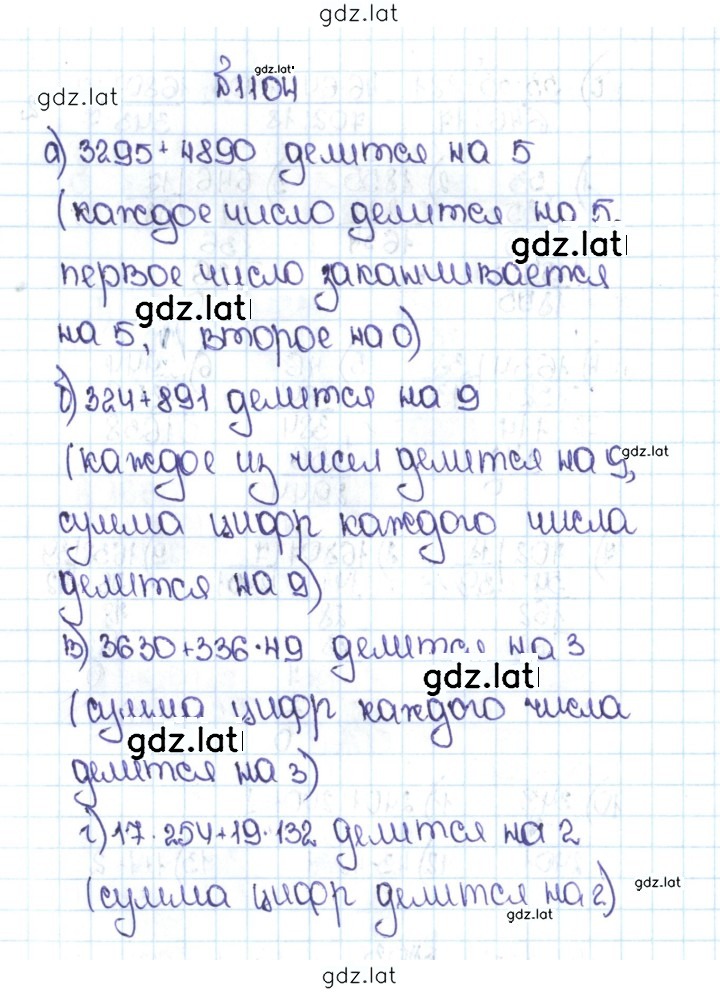 gdz.lat
gdz.lat
№1104
gdz.lat
а) 3295+4890 делится на 5
(каждое число делится на 5.
gdz.lat
первое число заканчивается
gdz.lat
на 5, второе на 0)
б) 324+891 делится на 9
(каждое из чисел делится на 9,
gdz.lat
сумма цифр каждого числа
делится на 9)
в) 3630+336·49 делится на 3
gdz.lat
(сумма цифр каждого числа
gdz.lat
делится на 3)
г) 17·254+19·132 делится на 2
(сумма цифр делится на 2)
gdz.lat
gdz.lat
gdz.lat